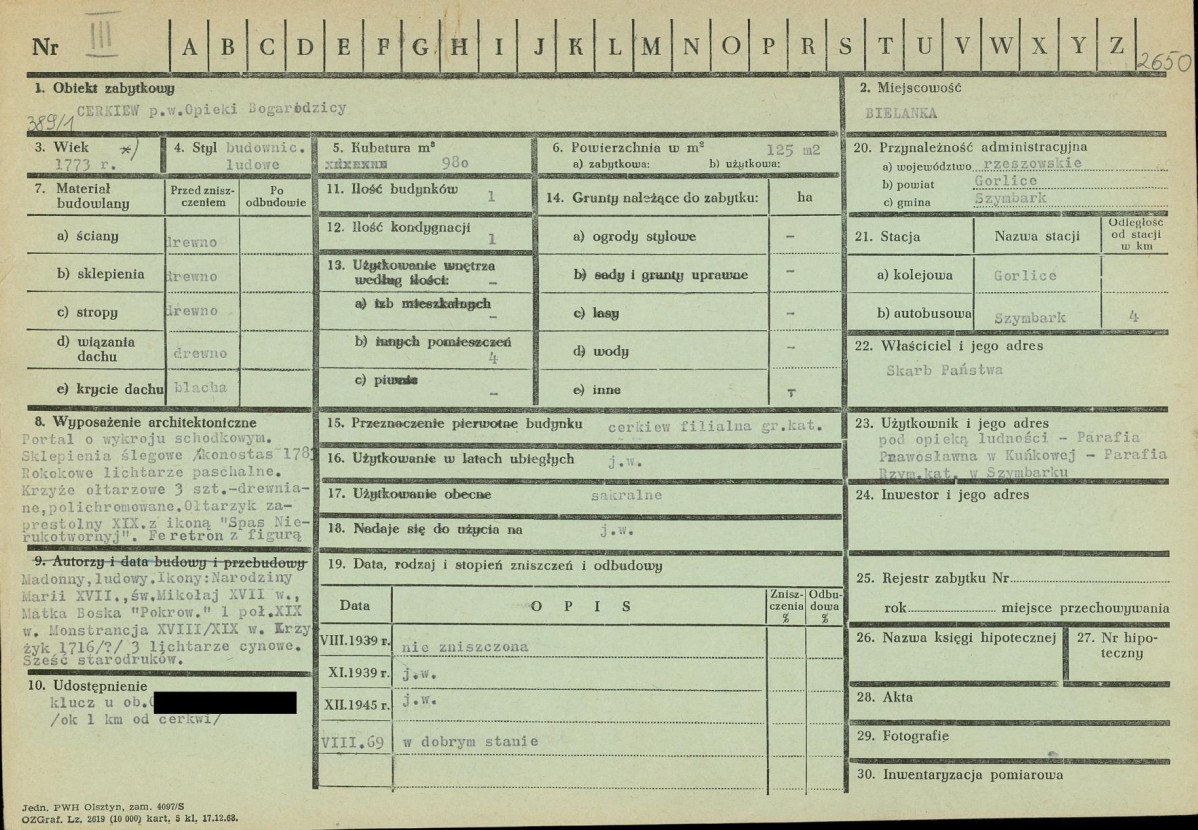 Nr III A B C D E F G H I J K L M N O P R S T U V W X Y Z 2650
1. Obiekt zabytkowy
CERKIEW p.w.Opieki Bogarodzicy
389/1
2. Miejscowość
BIELANKA
3. Wiek *)
1773 r.
4. Styl budownic.
ludowe
5. Kubatura m³
980
6. Powierzchnia w m² 125 m2
a) zabytkowa: b) użytkowa:
20. Przynależność administracyjna
a) województwo rzeszowskie
b) powiat Gorlice
c) gmina Szymbark
7. Materiał budowlany
Przed zniszczeniem
Po odbudowie
a) ściany drewno
b) sklepienia drewno
c) stropy drewno
d) wiązania dachu drewno
e) krycie dachu blacha
11. Ilość budynków 1
12. Ilość kondygnacji 1
13. Użytkowanie wnętrza
według ilości: -
a) izb mieszkalnych -
b) innych pomieszczeń 4
c) piwnic -
14. Grunty należące do zabytku: ha
a) ogrody stylowe -
b) sady i grunty uprawne -
c) lasy -
d) wody -
e) inne -
21. Stacja Nazwa stacji Odległość od stacji w km
a) kolejowa Gorlice
b) autobusowa Szymbark 4
22. Właściciel i jego adres
Skarb Państwa
8. Wyposażenie architektoniczne
Portal o wykroju schodkowym.
Sklepienia ślegowe /konostas 1783
Rokokowe lichtarze paschalne.
Krzyże ołtarzowe 3 szt.-drewnia-
ne,polichromowane.Ołtarzyk za-
prestolny XIX.z ikoną "Spas Nie-
rukotwornyj". Feretron z figurą
9. Autorzy i data budowy i przebudowy
Madonny,ludowy.Ikony:Narodziny
Marii XVII.,św.Mikołaj XVII w.,
Matka Boska "Pokrow." 1 poł.XIX
w. Monstrancja XVIII/XIX w. Krzy
żyk 1716/?/ 3 lichtarze cynowe.
Sześć starodruków.
10. Udostępnienie
klucz u ob.
/ok 1 km od cerkwi/
15. Przeznaczenie pierwotne budynku cerkiew filialna gr.kat.
16. Użytkowanie w latach ubiegłych j.w.
17. Użytkowanie obecne sakralne
18. Nadaje się do użycia na j.w.
19. Data, rodzaj i stopień zniszczeń i odbudowy
Data O P I S Zniszczenia % Odbudowa %
VIII.1939 r. nie zniszczona
XI.1939 r. j.w.
XII.1945 r. j.w.
VIII.69 w dobrym stanie
23. Użytkownik i jego adres
pod opieką ludności - Parafia
Prawosławna w Kuńkowej - Parafia
Rzym.kat. w Szymbarku
24. Inwestor i jego adres
25. Rejestr zabytku Nr
rok miejsce przechowywania
26. Nazwa księgi hipotecznej
27. Nr hipoteczny
28. Akta
29. Fotografie
30. Inwentaryzacja pomiarowa
Jedn. PWH Olsztyn, zam. 4097/S
OZGraf. Lz. 2619 (10 000) kart. 5 kl. 17.12.68.